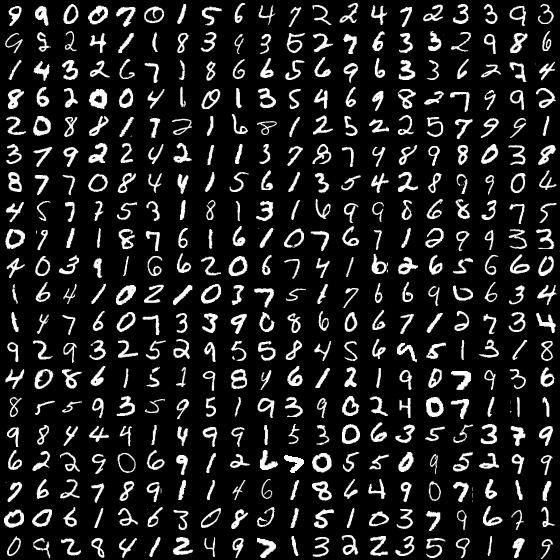 9 9 0 0 7 0 1 5 6 4 7 2 2 4 7 2 3 3 9 3
9 2 2 4 1 1 8 3 9 3 5 2 7 6 3 3 2 9 8 6
1 4 3 2 6 7 1 8 6 6 5 6 9 6 3 3 6 2 7 4
8 6 2 0 0 4 1 0 1 3 5 4 6 9 8 2 7 9 9 2
2 0 8 8 1 7 2 1 6 8 1 2 5 2 2 5 7 9 9 1
3 7 9 2 2 4 2 1 1 3 7 8 7 4 8 9 8 0 3 8
8 7 7 0 8 4 4 1 5 6 1 3 5 4 2 8 9 9 0 4
4 5 7 7 5 3 1 8 1 3 1 6 9 9 8 6 8 3 7 5
0 9 1 1 8 7 6 1 6 1 0 7 6 7 1 2 9 9 3 3
4 0 3 9 1 6 6 2 0 6 7 4 1 6 2 6 5 6 6 0
1 6 4 1 0 2 1 0 3 7 5 1 7 6 6 9 0 6 3 4
1 4 7 6 0 7 3 3 9 0 8 6 0 6 7 1 2 7 3 4
9 2 9 3 2 5 2 9 5 5 8 4 5 6 9 5 1 3 1 8
4 0 8 6 1 5 2 9 8 4 6 1 2 1 9 0 7 9 3 6
8 5 5 9 3 5 9 5 1 9 3 9 0 2 4 0 7 1 1 1
9 8 4 4 9 1 4 9 9 1 5 3 0 6 3 5 5 3 7 9
6 2 2 9 0 6 9 1 2 6 7 0 5 5 0 9 5 2 9 9
7 6 2 7 8 9 1 1 4 6 1 8 6 4 9 0 7 6 1 1
0 0 6 1 2 6 3 0 8 2 1 5 1 0 3 7 9 6 7 2
0 9 2 8 4 1 2 4 9 7 1 3 2 2 3 5 9 1 9 9